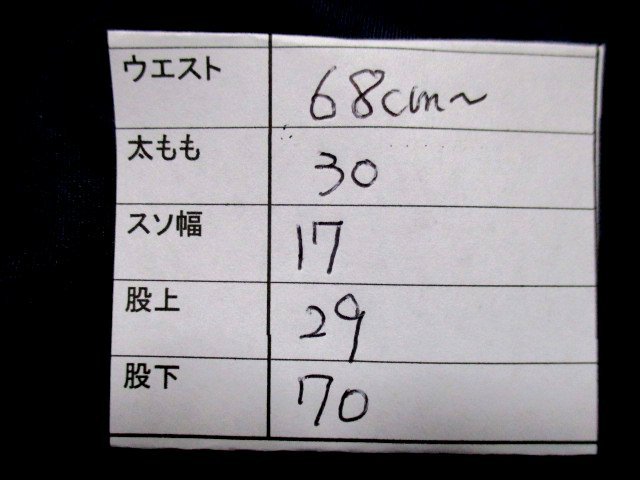 ウエスト 68cm〜
太もも 30
スソ幅 17
股上 29
股下 70